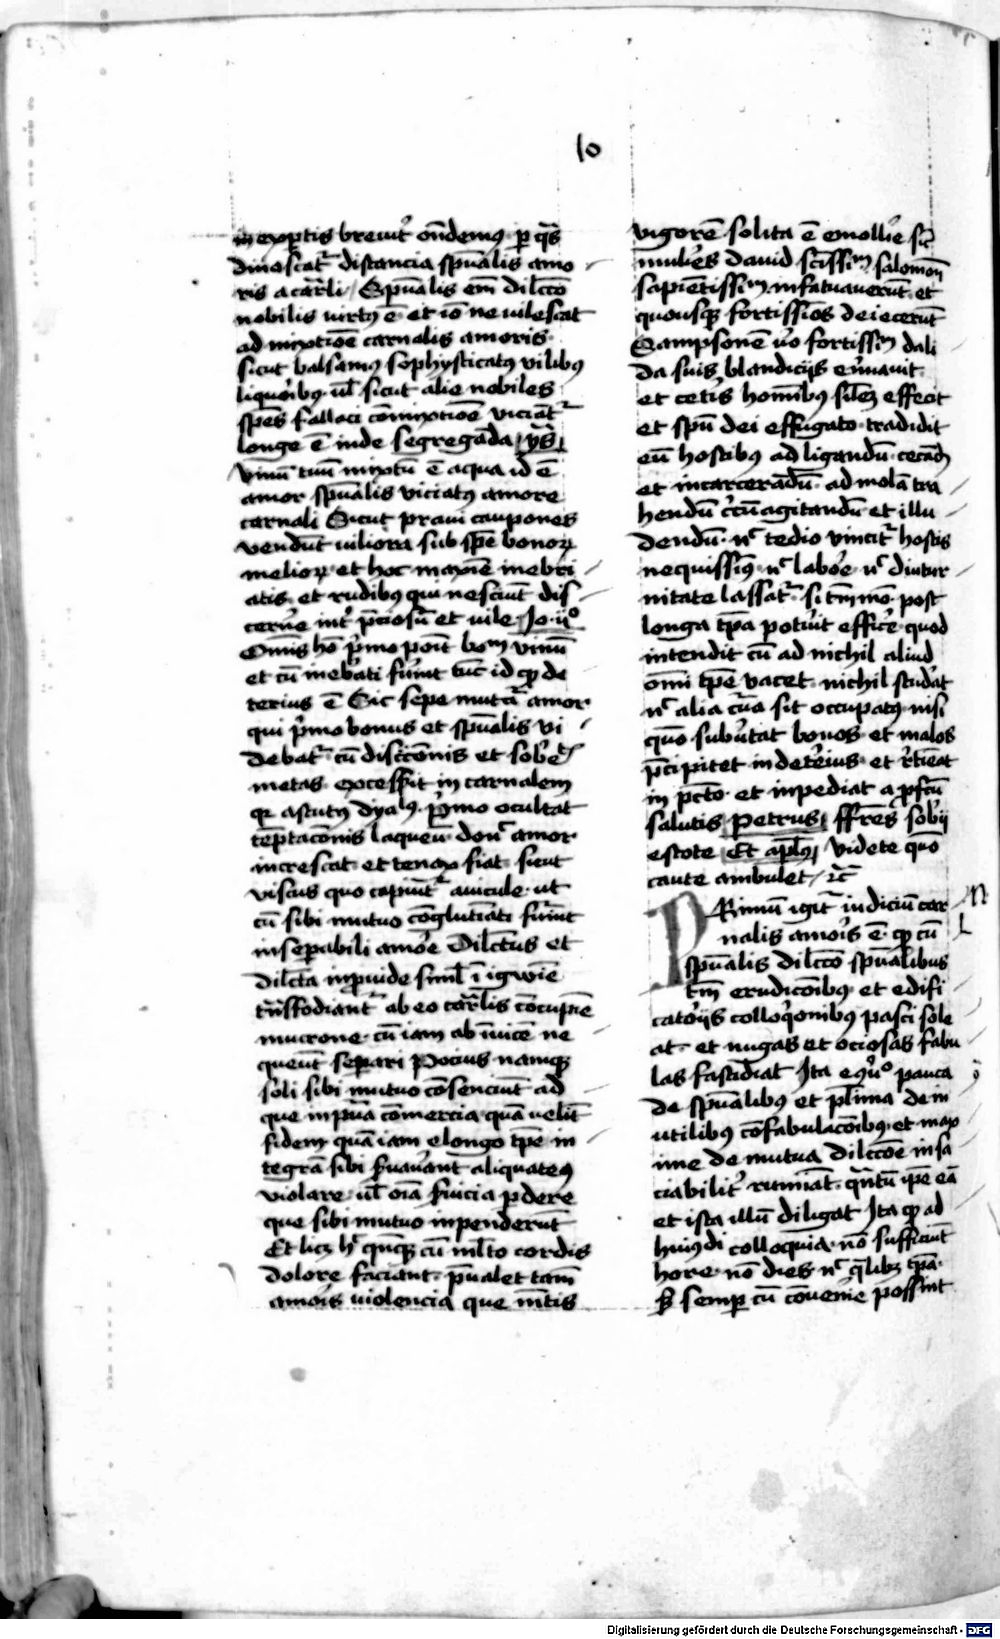 10
inexpertis breuit᷑ oñdemꝯ ꝑ q̄s
dinoscat᷑ distancia sp̄ualis amo
ris a carͣli Sp̄ualis em̄ dilcc̄o
nobilis virtꝯ ē et iō ne vilescat
ad mixtionē carnalis amoris
sicut balsamꝯ sophysticatꝯ vilibꝯ
liquoribꝯ ul̄ sicut alie nobiles
sp̄es fallaci cōmixtiōe viciāt᷑
longe ē inde segregāda ys̄
vinū tuū mixtū ē aqua id ē
amor sp̄ualis viciatꝯ amore
carnali Sicut praui caupones
vendūt viliora sub sp̄e bonoꝝ
melioꝝ et hoc maxīe inebri
atis et rudibꝯ qui nesciūt dis
cerne᷑ int᷑ p̄ciosū et vile Jo ijº
Om̄is hō pͥmo ponit bom vinū
et cū inebͥati fu᷑int tūc id qꝫ de
terius ē Sic sepe mutat᷑ amor
qui pͥmo bonus et sp̄ualis vi
debat᷑ cū discc̄onis et sobͥet
metas excesserit in carnalem
qꝛ astutꝯ dyalꝯ pͥmo ocultat
teptac̄onis laqueū donͨ amor
increscat et tenax fiat sicut
viscus quo capiunt᷑ auicule ut
cū sibi mutuo cōglutinati fu᷑int
inseꝑabili amore Dilc̄tus et
dilc̄ta inprouide siml̄ ī igwīe
trāsfodiant᷑ ab eo carͣlis cōcupīe
mucrone cū iam ab īuicē ne
queūt seꝑari Pocius namqꝫ
soli sibi mutuo cōsenciūt ad
que inpͥua comercia quā velīt
fidem quā iam elongo tp̄e in
tegrā sibi ẜuauͣant aliquatenꝯ
violare ul̄ oīa ẜuicia ꝑdere
que sibi mutuo inpenderūt
Et licꝫ hͨ qn̄qꝫ cū ml̄to cordis
dolore faciant p̄ualet tam̄
amoris violencia que mētis
vigorē solita ē emollire sic̄
mulie᷑es dauid sc̄issim salomonē
sapiētissim infatuauerūt et
quousqꝫ fortissīos deiecerūt
Sampsonē vͦo fortissm dali
da suis blandicijs eneruauit
et cetͥis hom̄ibꝯ sil̄eꝫ effecit
et spm̄ dei effugato tradidit
eū hostibꝯ ad ligandū cecādū
et incarcerādū ad molā tra
hendū circūagitandū et illu
dendū nͨ tedio vincit᷑ hostis
nequissīꝯ nͨ labore nͨ diutur
nitate lassat᷑ si tm̄mō post
longa tp̄a potu᷑it effice᷑ quod
intendit cū ad nichil aliud
om̄i tp̄e vacet nichil studeat
nͨ alia cura sit occupatꝯ nisi
quō subu᷑tat bonos et malos
p̄cipitet in dete᷑ius et rͤtieat
in pctō et inpediat a ꝓfc̄u
salutis Petrus ff̄res sobͥij
estote Et apl̄ꝯ Videte quō
caute ambulet rc̄
PRimū igit᷑ indiciū car
nalis amoris ē qꝫ cū
sp̄ualis dilcc̄o sp̄ualibus
tm̄ erudic̄oibꝯ et edifi
catorijs colloq̄onibꝯ pasci sole
at et nugas et ociosas fabu
las fastidiat Ita e qͦº pauca
de sp̄ualibꝯ et pl̄ima de in
utilibꝯ cōfabulac̄oibꝯ et max
ime de mutua dilcc̄oe insa
ciabilit᷑ ruminat qn̄tū ip̄e eā
et ista illū diligat Ita qꝫ ad
huiꝯdi colloquia nō sufficiūt
hore nō dies nͨ q̄libꝫ tp̄a
sꝫ semꝑ cū couenīe possint